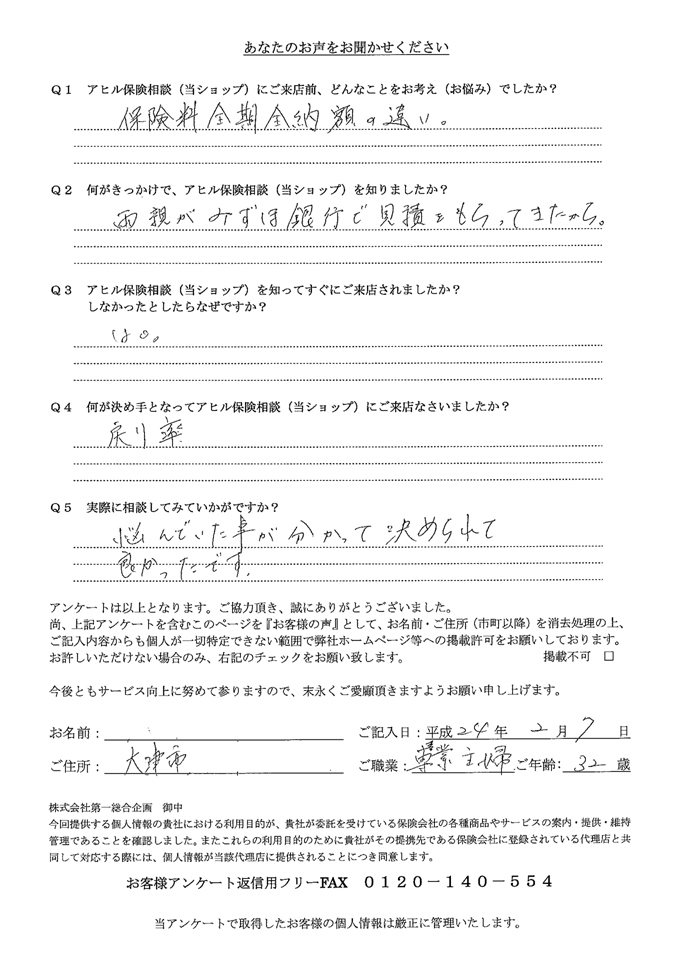 あなたのお声をお聞かせください
Q1 アヒル保険相談（当ショップ）にご来店前、どんなことをお考え（お悩み）でしたか？
保険料全期全納額の違い。
Q2 何がきっかけで、アヒル保険相談（当ショップ）を知りましたか？
両親がみずほ銀行で見積をもらってきたから。
Q3 アヒル保険相談（当ショップ）を知ってすぐにご来店されましたか？
しなかったとしたらなぜですか？
はい。
Q4 何が決め手となってアヒル保険相談（当ショップ）にご来店なさいましたか？
戻り率
Q5 実際に相談してみていかがですか？
悩んでいた事が分かって決められて
良かったです。
アンケートは以上となります。ご協力頂き、誠にありがとうございました。
尚、上記アンケートを含むこのページを『お客様の声』として、お名前・ご住所（市町以降）を消去処理の上、
ご記入内容からも個人が一切特定できない範囲で弊社ホームページ等への掲載許可をお願いしております。
お許しいただけない場合のみ、右記のチェックをお願い致します。 掲載不可 □
今後ともサービス向上に努めて参りますので、末永くご愛顧頂きますようお願い申し上げます。
お名前： ご記入日：平成24年 2月 7日
ご住所： 大津市 ご職業：専業主婦 ご年齢：32歳
株式会社第一総合企画 御中
今回提供する個人情報の貴社における利用目的が、貴社が委託を受けている保険会社の各種商品やサービスの案内・提供・維持
管理であることを確認しました。またこれらの利用目的のために貴社がその提携先である保険会社に登録されている代理店と共
同して対応する際には、個人情報が当該代理店に提供されることにつき同意します。
お客様アンケート返信用フリーFAX 0120－140－554
当アンケートで取得したお客様の個人情報は厳正に管理いたします。